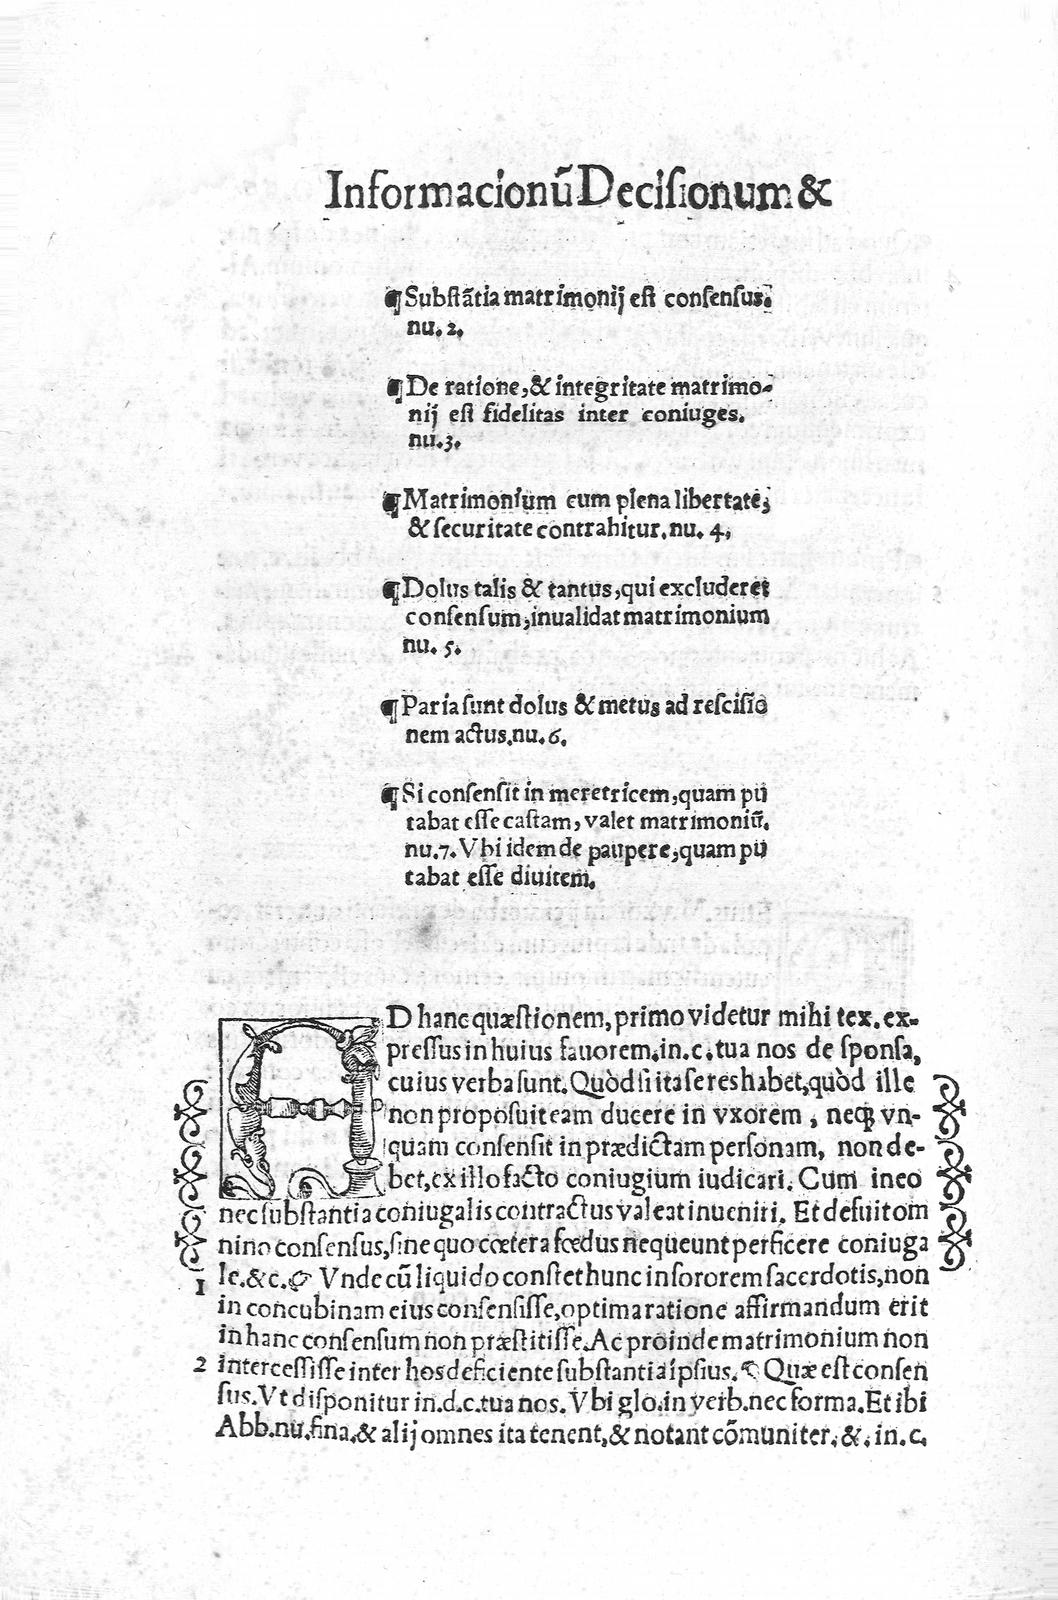 Informacionũ Decisionum &
¶Substãtia matrimonij est consensus.
nu. 2.
¶De ratione, & integritate matrimo-
nij est fidelitas inter coniuges.
nu.3.
¶Matrimonium cum plena libertate,
& securitate contrahitur. nu. 4,
¶Dolus talis & tantus, qui excluderet
consensum, inualidat matrimonium
nu. 5.
¶Paria sunt dolus & metus ad rescisiõ
nem actus. nu. 6.
¶Si consensit in meretricem, quam pu
tabat esse castam, valet matrimoniũ.
nu.7. Vbi idem de paupere, quam pu
tabat esse diuitem.
AD hanc quæstionem, primo videtur mihi tex. ex-
pressus in huius fauorem. in. c. tua nos de sponsa,
cuius verba sunt. Quòd si ita se res habet, quòd ille
non proposuit eam ducere in vxorem, neq; vn-
quam consensit in prædictam personam, non de-
bet, ex illo facto coniugium iudicari. Cum in eo
nec substantia coniugalis contractus valeat inueniri. Et defuit om
nino consensus, sine quo cœtera fœdus nequeunt perficere coniuga
1 le. &c. ☞ Vnde cũ liquido constet hunc in sororem sacerdotis, non
in concubinam eius consensisse, optima ratione affirmandum erit
in hanc consensum non præstitisse. Ac proinde matrimonium non
2 intercessisse inter hos deficiente substantia ipsius. Quæ est consen
sus. Vt disponitur in. d. c. tua nos. Vbi glo. in verb. nec forma. Et ibi
Abb. nu. fina. & alij omnes ita tenent, & notant cõmuniter. &. in. c.